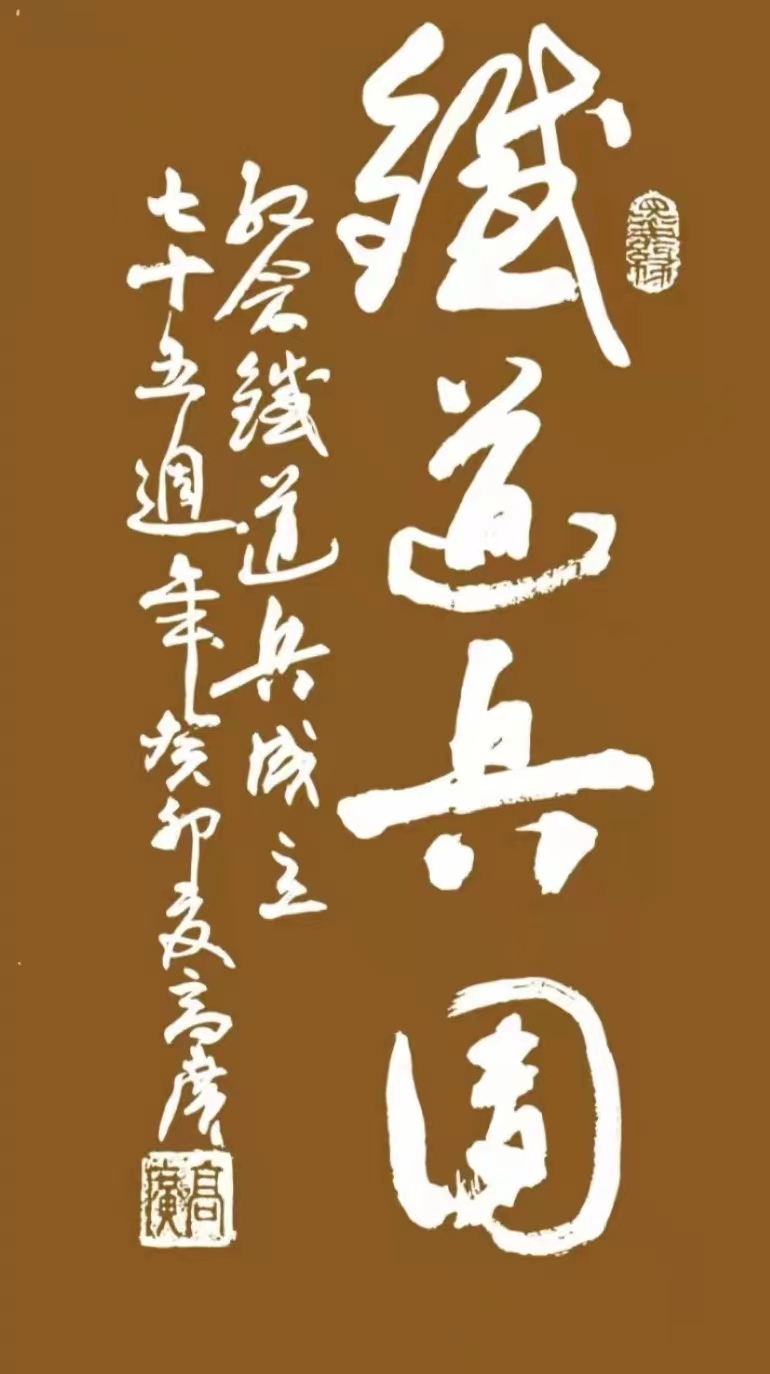 鐵道兵團
紀念鐵道兵成立
七十五週年癸卯夏高廣
高廣